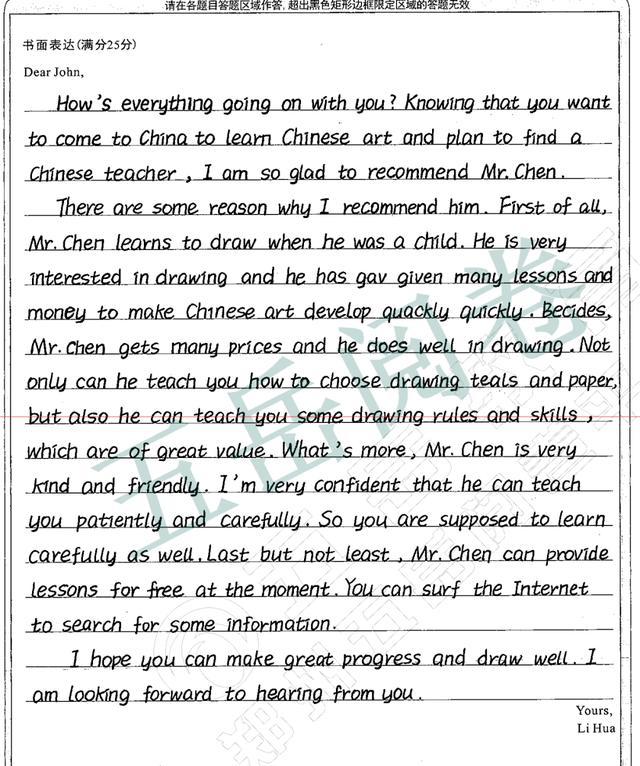 请在各题目答题区域作答,超出黑色矩形边框限定区域的答题无效
书面表达(满分25分)
Dear John,
How's everything going on with you? Knowing that you want
to come to China to learn Chinese art and plan to find a
Chinese teacher, I am so glad to recommend Mr. Chen.
There are some reason why I recommend him. First of all,
Mr. Chen learns to draw when he was a child. He is very
interested in drawing and he has gav given many lessons and
money to make Chinese art develop quackly quickly. Becides,
Mr. Chen gets many prices and he does well in drawing. Not
only can he teach you how to choose drawing teals and paper,
but also he can teach you some drawing rules and skills,
which are of great value. What's more, Mr. Chen is very
kind and friendly. I'm very confident that he can teach
you patiently and carefully. So you are supposed to learn
carefully as well. Last but not least, Mr. Chen can provide
lessons for free at the moment. You can surf the Internet
to search for some information.
I hope you can make great progress and draw well. I
am looking forward to hearing from you.
Yours,
Li Hua
五岳阅卷